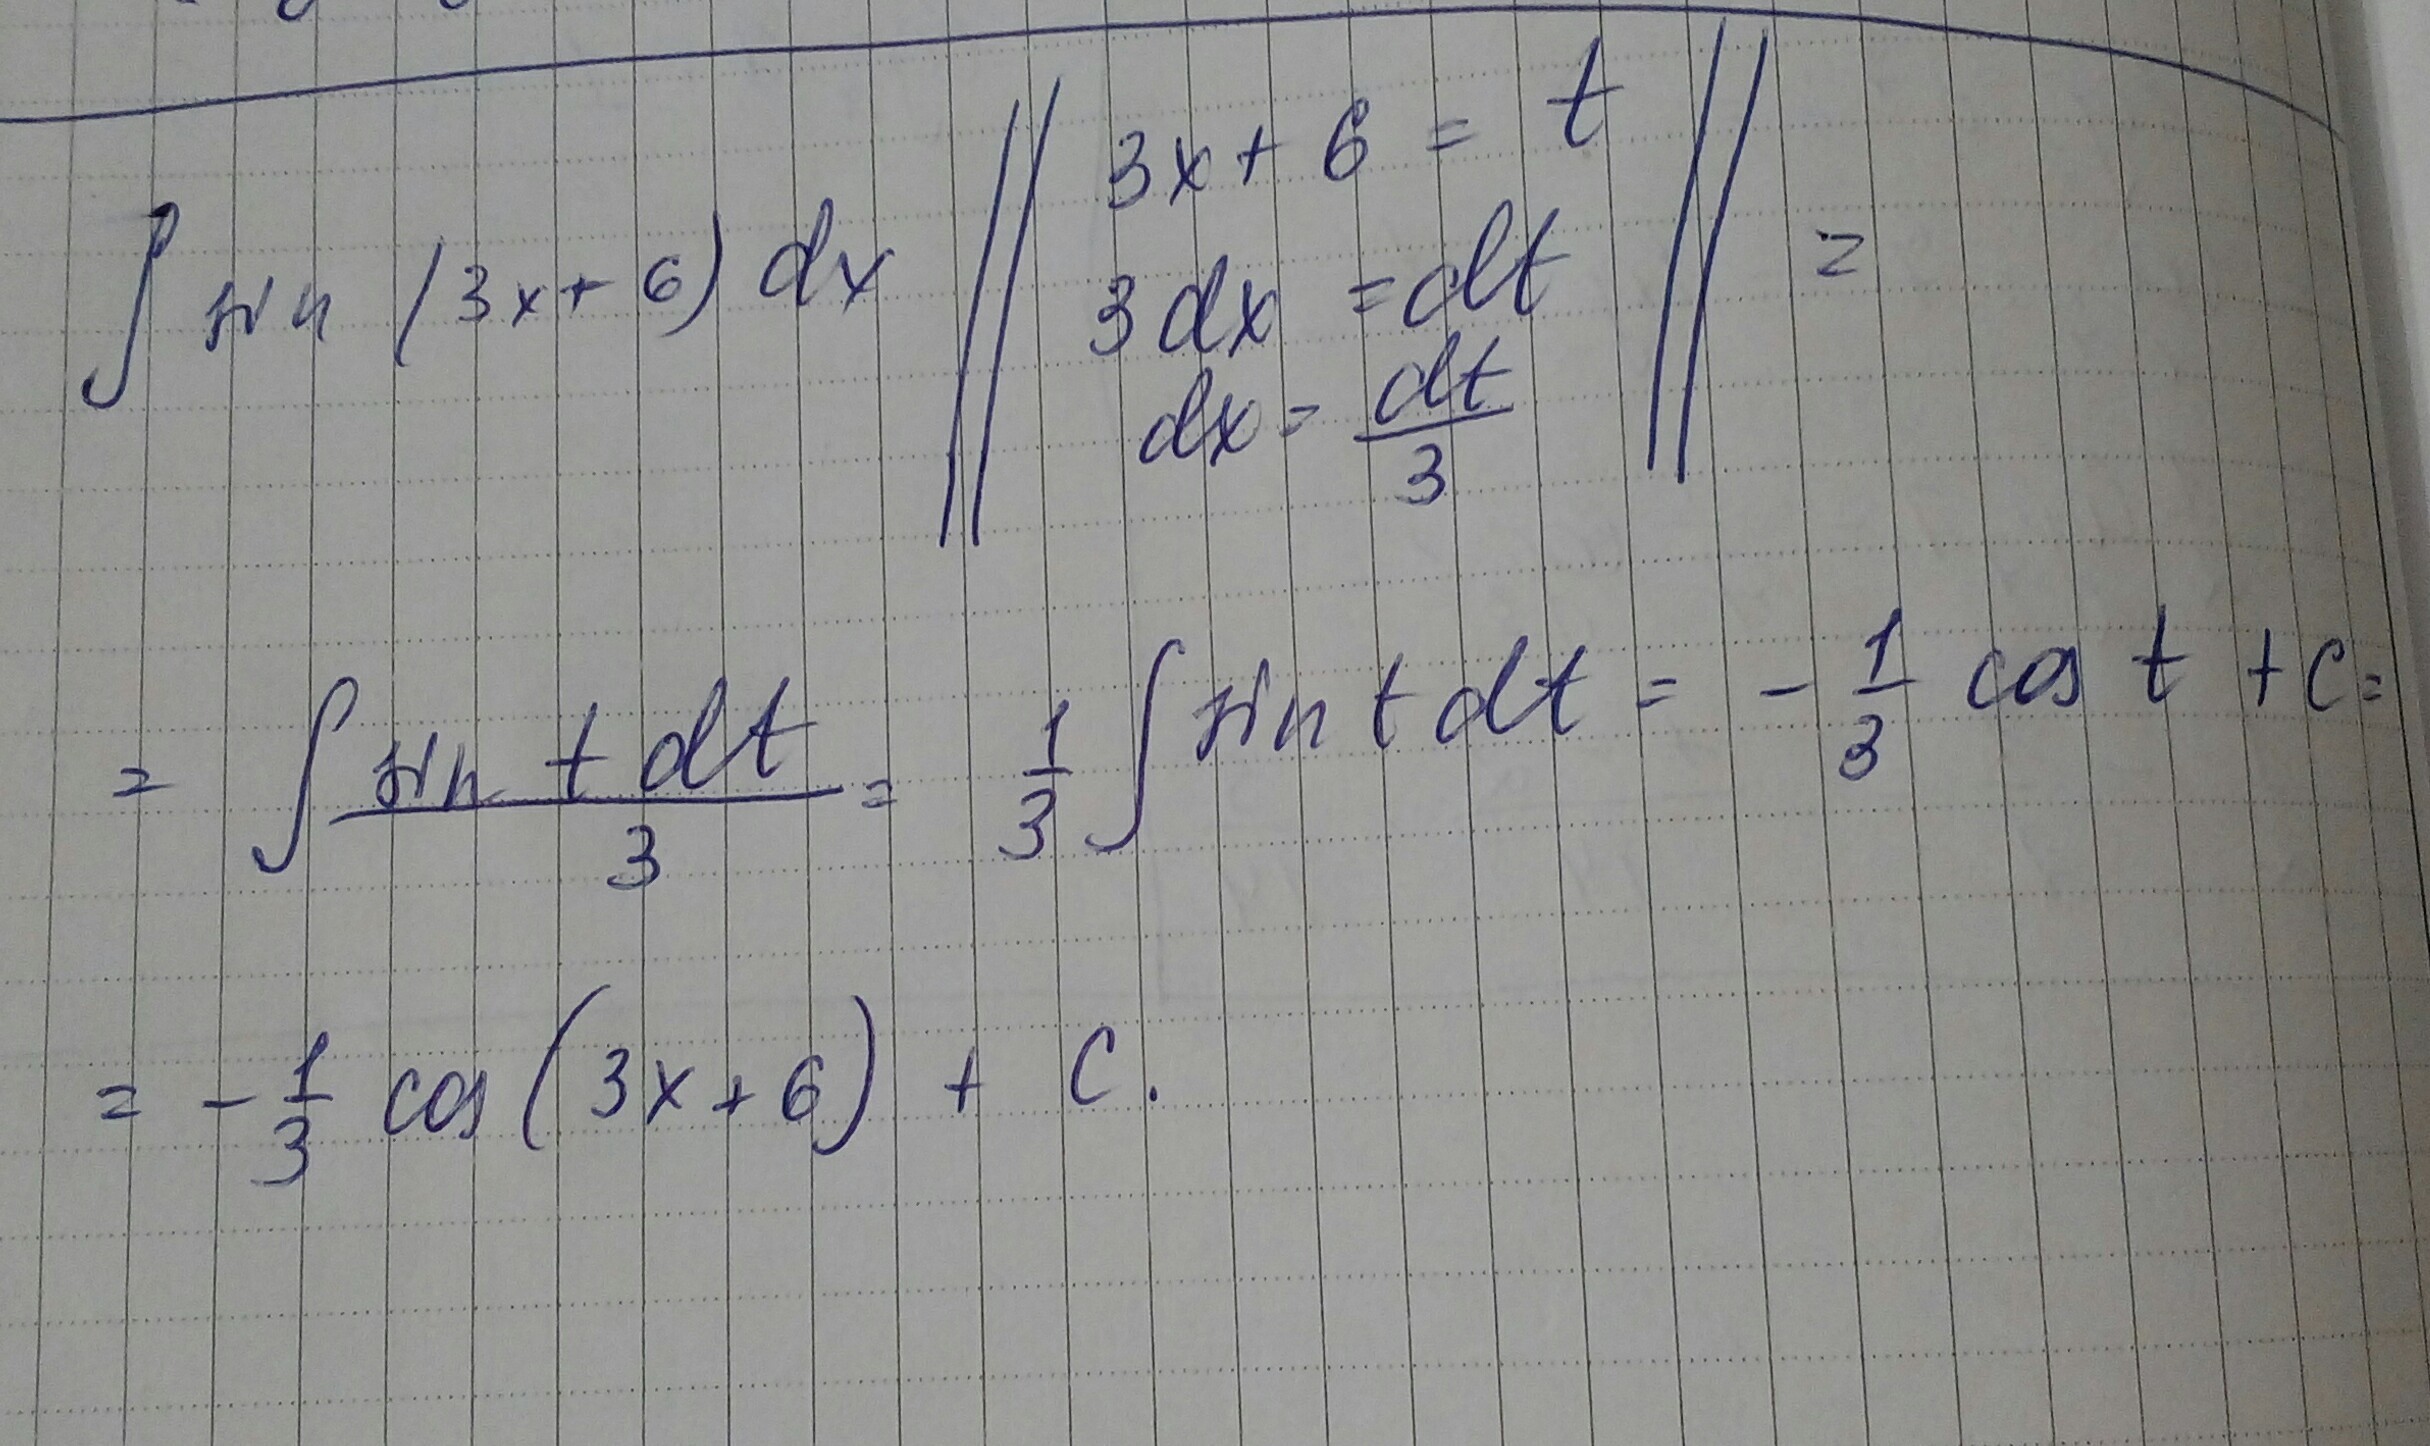 ∫ sin (3x+6) dx || 3x+6 = t || =
3dx = dt
dx = dt/3
= ∫ sin t dt / 3 = 1/3 ∫ sin t dt = - 1/3 cos t + C =
= - 1/3 cos (3x+6) + C.